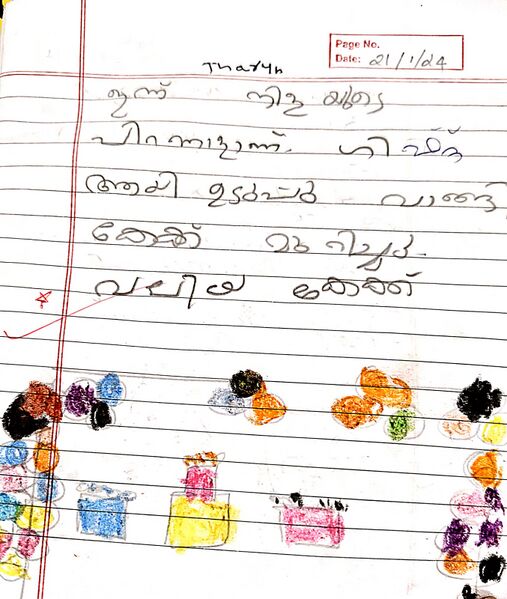 Page No.
Date: 21/1/24
Tharun
ഇന്ന് നിളയുടെ
പിറന്നാളാണ്. ഗിഫ്റ്റ്
ആയി ഉടുപ്പ് വാങ്ങി
കേക്ക് മുറിച്ചു.
വലിയ കേക്ക്